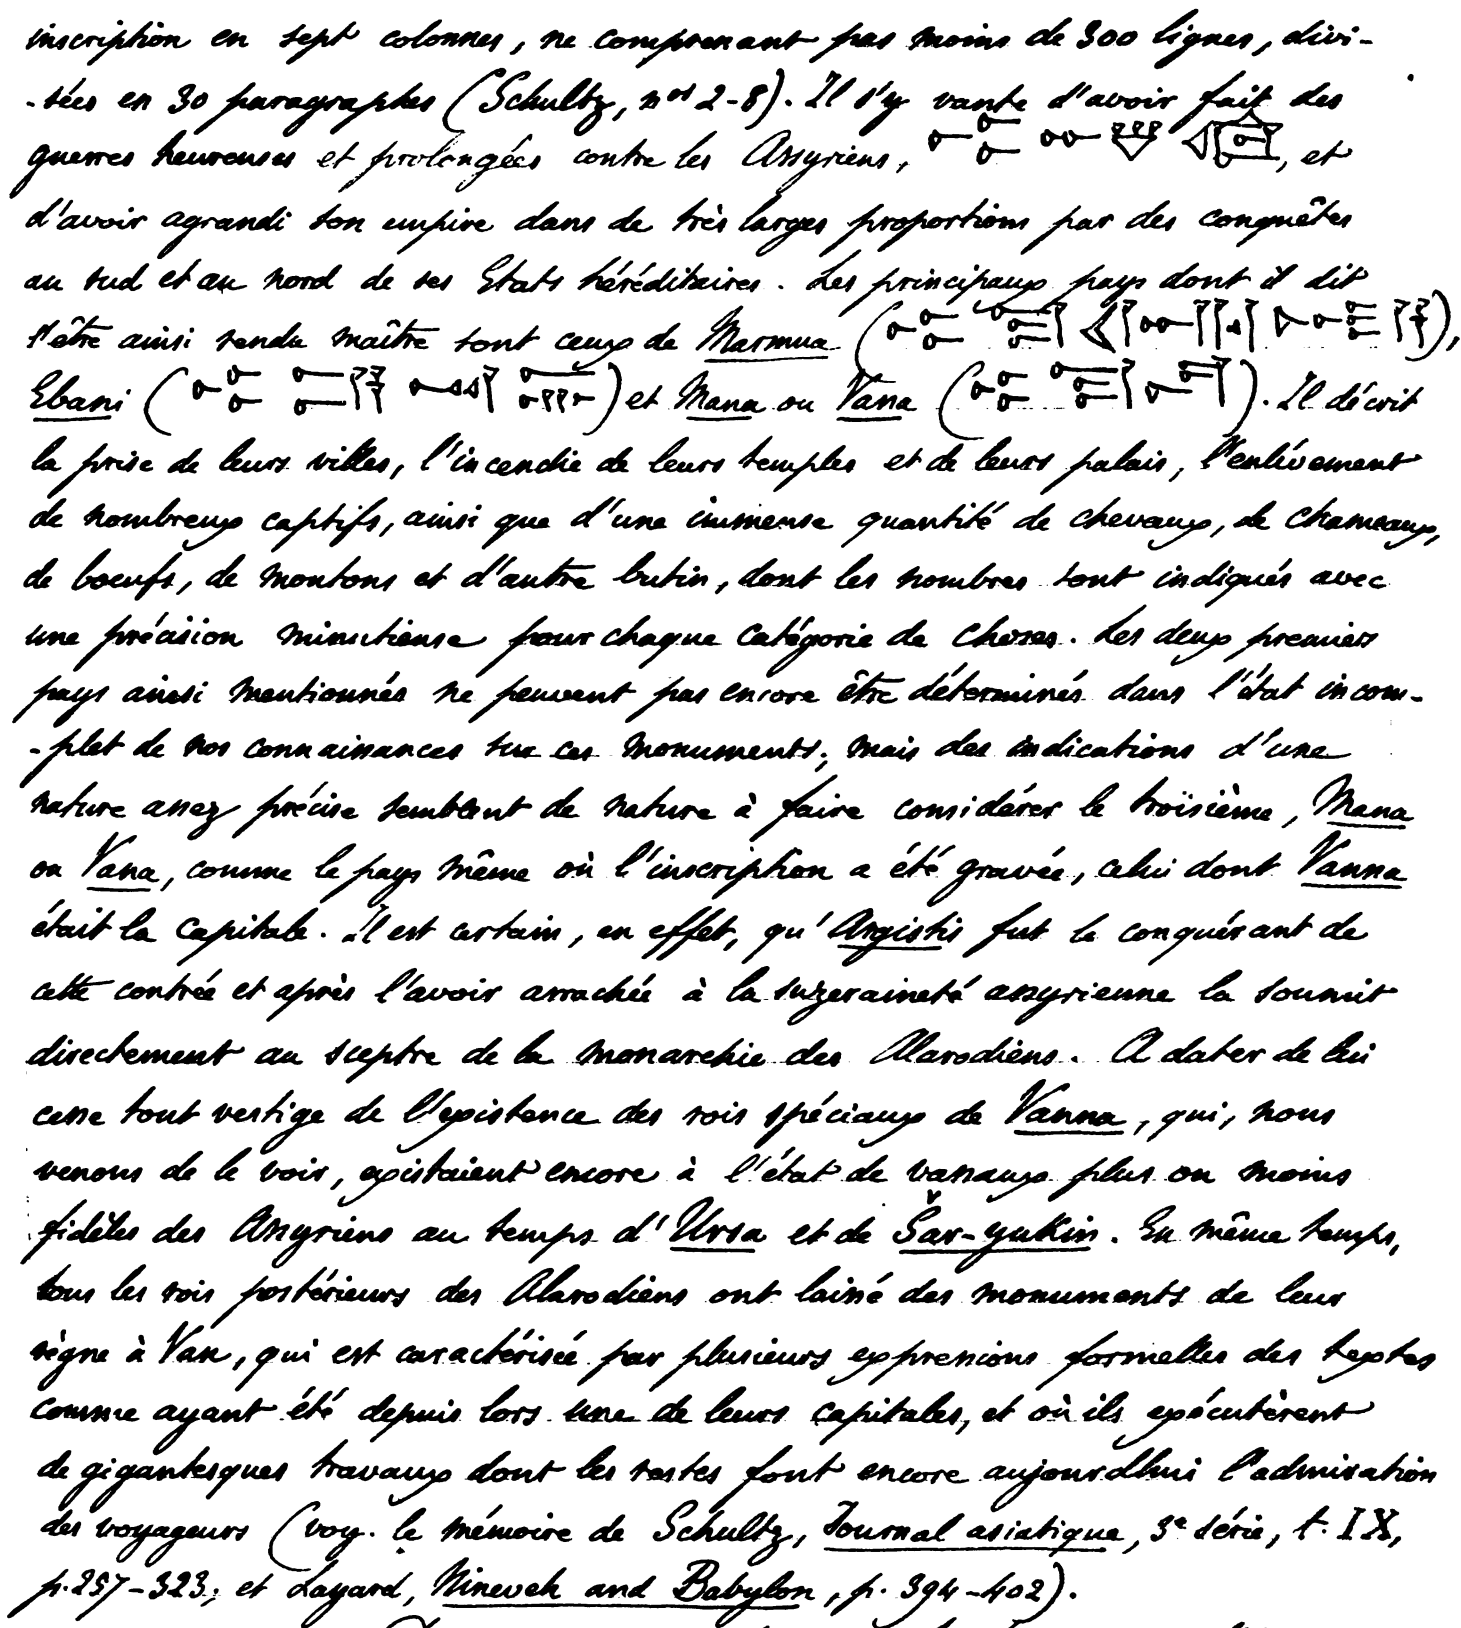 inscription en sept colonnes, ne comprenant pas moins de 300 lignes, divi-
-sées en 30 paragraphes (Schultz, nos 2-8). Il s'y vante d'avoir fait des
guerres heureuses et prolongées contre les Assyriens, , et
d'avoir agrandi son empire dans de très larges proportions par des conquêtes
au sud et au nord de ses Etats héréditaires. Les principaux pays dont il dit
s'être ainsi rendu maître sont ceux de Marmua ( ),
Ebani ( ) et Mana ou Vana ( ). Il décrit
la prise de leurs villes, l'incendie de leurs temples et de leurs palais, l'enlèvement
de nombreux captifs, ainsi que d'une immense quantité de chevaux, de chameaux,
de boeufs, de moutons et d'autre butin, dont les nombres sont indiqués avec
une précision minutieuse pour chaque catégorie de choses. Les deux premiers
pays ainsi mentionnés ne peuvent pas encore être déterminés dans l'état incom-
-plet de nos connaissances sur ces monuments; mais des indications d'une
nature assez précise semblent de nature à faire considérer le troisième, Mana
ou Vana, comme le pays même où l'inscription a été gravée, celui dont Vanna
était la capitale. Il est certain, en effet, qu'Argistis fut le conquérant de
cette contrée et après l'avoir arrachée à la suzeraineté assyrienne la soumit
directement au sceptre de la monarchie des Alarodiens. A dater de lui
cesse tout vestige de l'existence des rois spéciaux de Vanna, qui, nous
venons de le voir, existaient encore à l'état de vassaux plus ou moins
fidèles des Assyriens au temps d'Ursa et de Šar-yukin. En même temps,
tous les rois postérieurs des Alarodiens ont laissé des monuments de leur
règne à Van, qui est caractérisée par plusieurs expressions formelles des textes
comme ayant été depuis lors une de leurs capitales, et où ils exécutèrent
de gigantesques travaux dont les restes font encore aujourdhui l'admiration
des voyageurs (voy. le mémoire de Schultz, Journal asiatique, 3e série, t. IX,
p. 257-323; et Layard, Nineveh and Babylon, p. 394-402).